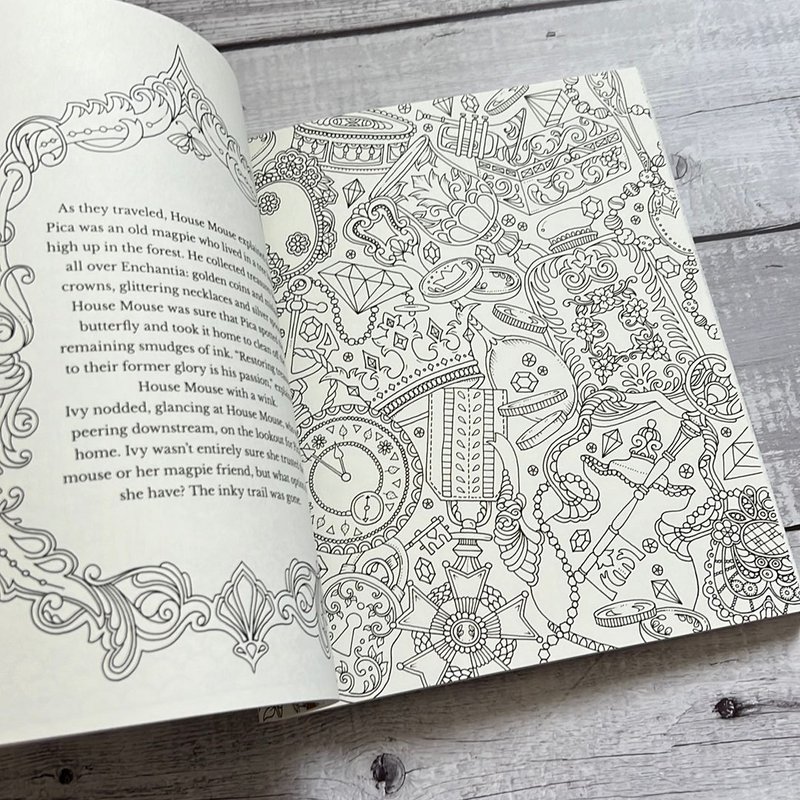 As they traveled, House Mouse explained
Pica was an old magpie who lived in a
high up in the forest. He collected
all over Enchantia: golden coins and
crowns, glittering necklaces and silver
House Mouse was sure that Pica
butterfly and took it home to clean
remaining smudges of ink. "Restoring
to their former glory is his passion,"
House Mouse with a wink.
Ivy nodded, glancing at House Mouse,
peering downstream, on the lookout for
home. Ivy wasn't entirely sure she
mouse or her magpie friend, but what
she have? The inky trail was gone.